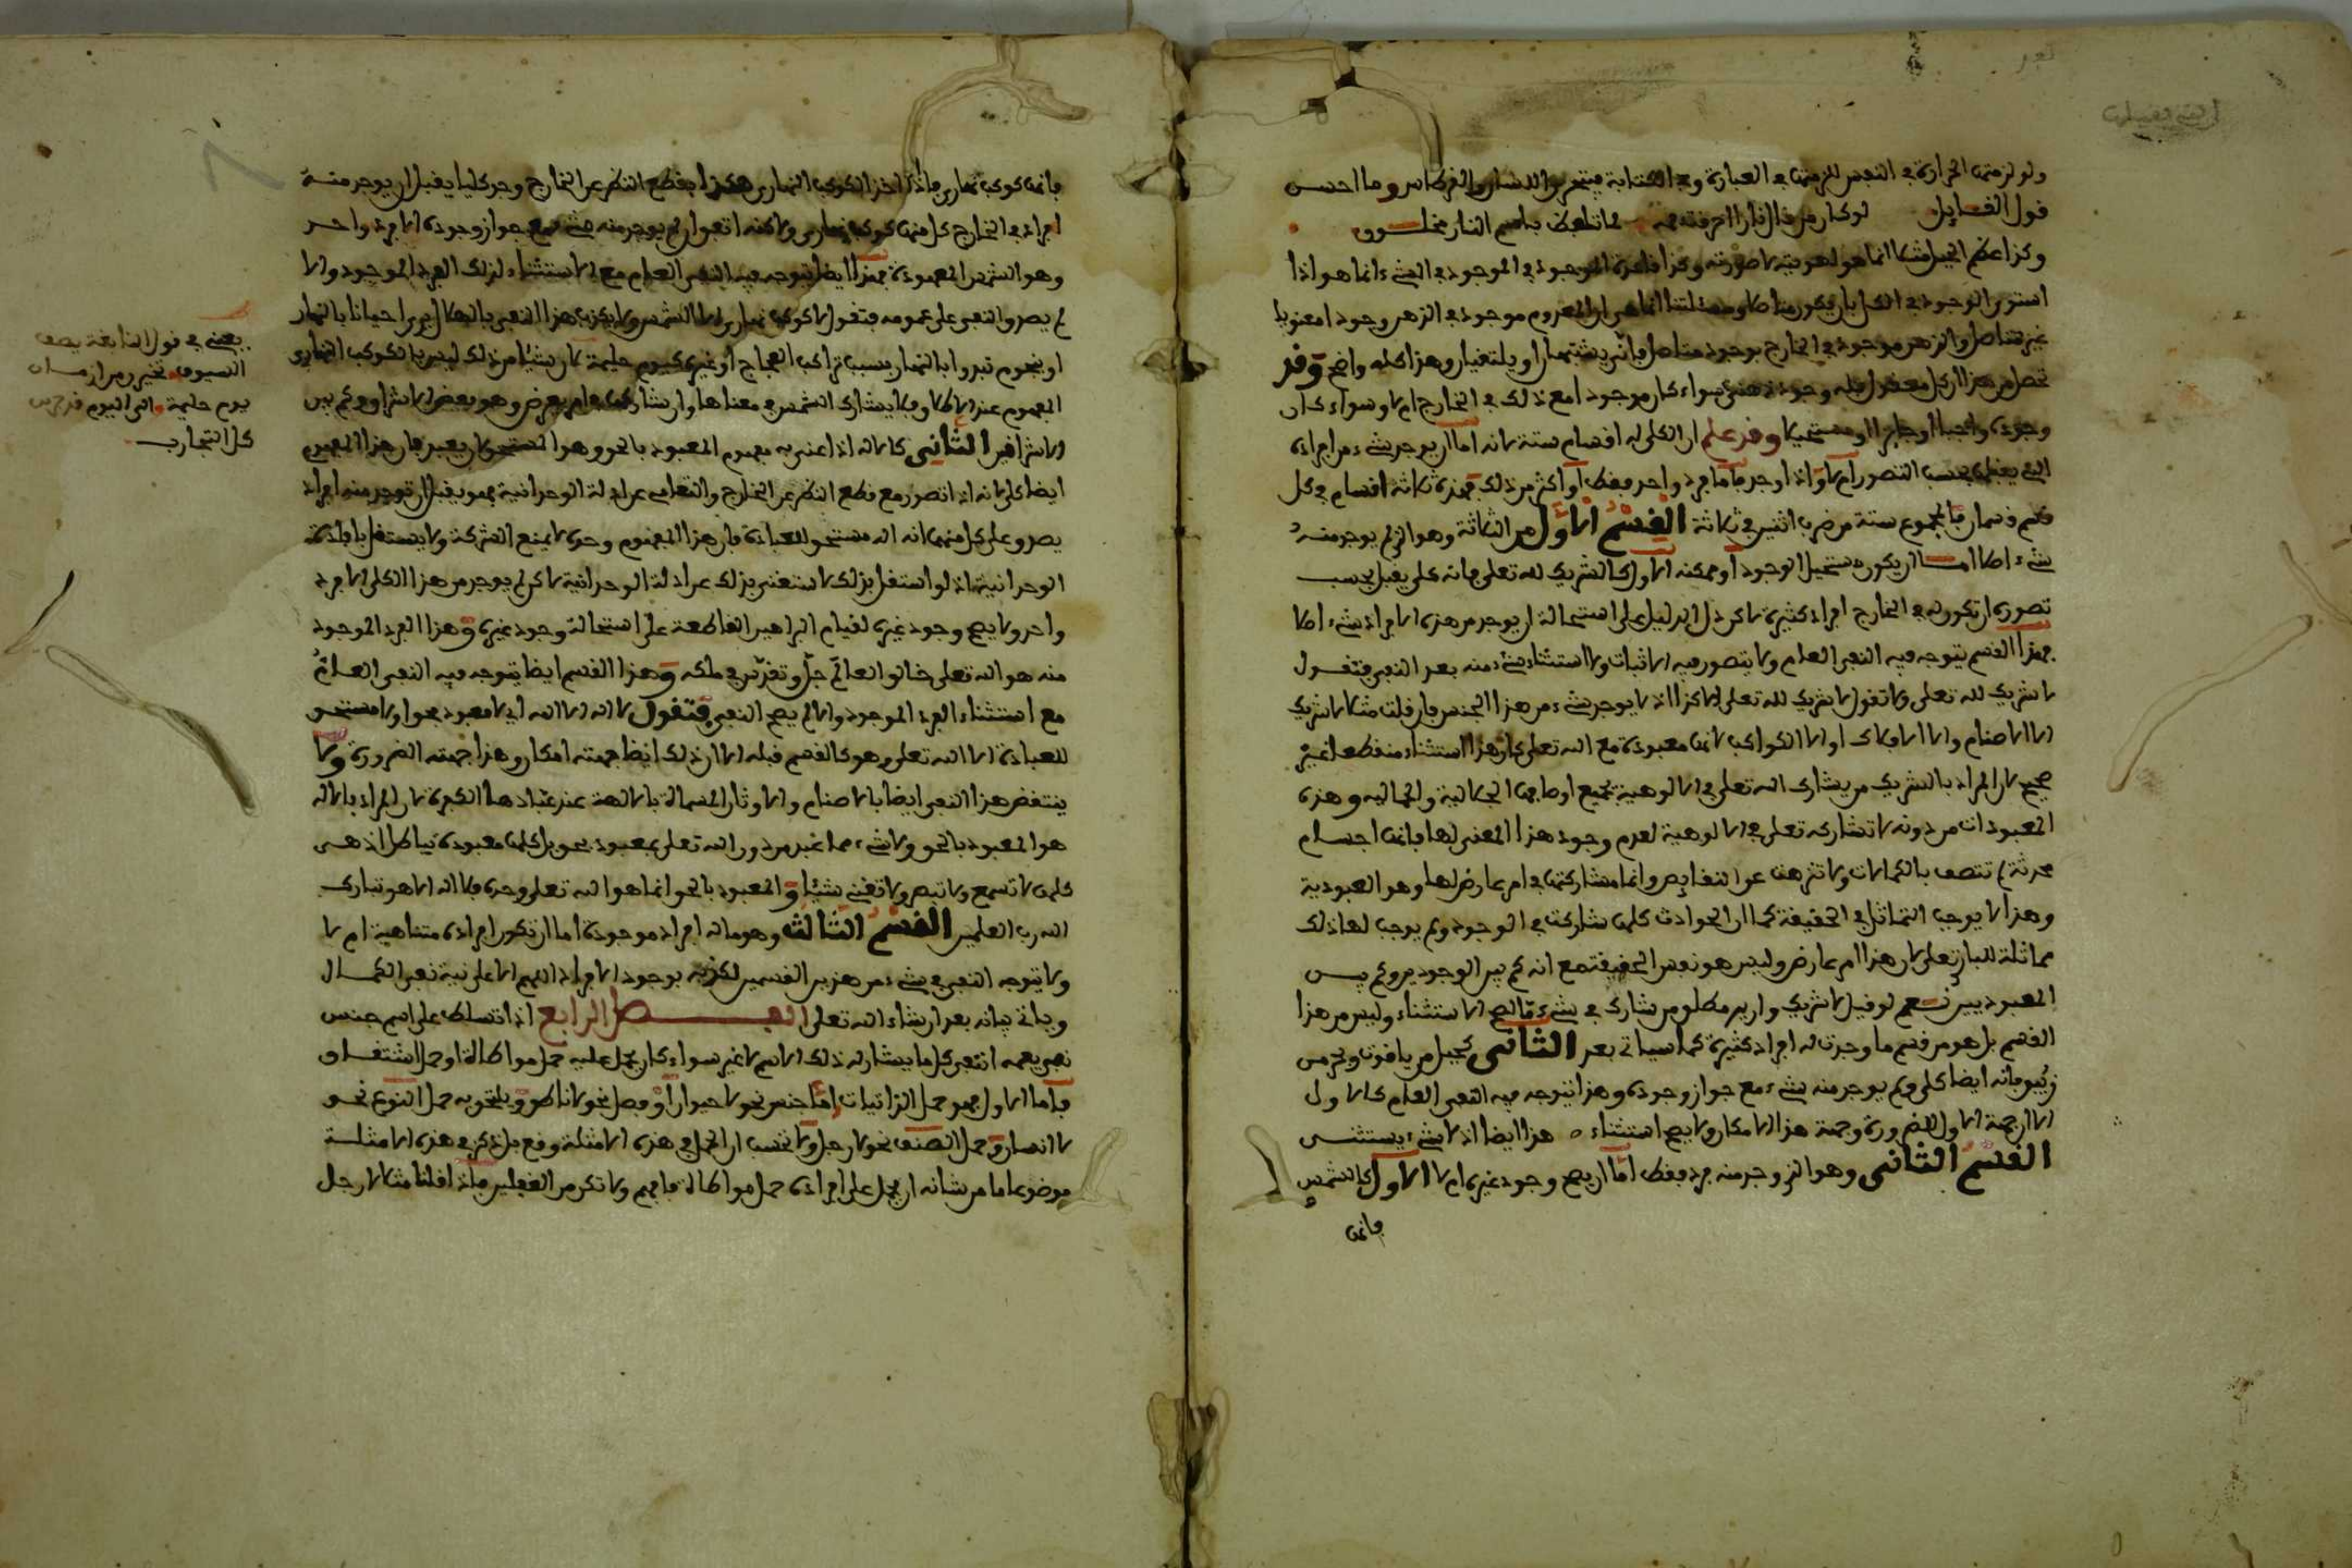 ولو لزمت الحرارة في النفس للزمت في العبارة وفي الكتابة فيتحرق اللسان والقرطاس وما احسن
قول القائل لو كان من قال نارا احرقت فمه لما تلفظ باسم النار مخلوق
وكذا عظم الجبل مثلا انما هو لهويته لا صورته وكذا قاعدة الموجود في الموجود في الشيء انما هو اذا
استوى الوجود في الكل بان يكون متاصلا ومسئلتنا انما هي ان المعدوم موجود في الذهن وجودا معنويا
غير متاصل والذهن موجود في الخارج بوجود متاصل فانى يشتبهان او يلتقيان وهذا كله واضح وقد
تحصل من هذا ان كل معقول فله وجود ذهني سواء كان موجودا مع ذلك في الخارج ام لا وسواء كان
وجوده واجبا او جايزا او مستحيلا وقد علم ان الكلي له اقسام ستة لانه اما ان يوجد شيء من افراده
التي يعقل بحسب التصور ام لا واذا وجد فاما فرد واحد فقط او اكثر من ذلك فهذه ثلاثة اقسام في كل
قسم قسمان فالمجموع ستة من ضرب اثنين في ثلاثة القسم الاول من الثلاثة وهو الذي لم يوجد منه
شيء اصلا اما ان يكون مستحيل الوجود او ممكنه الاول كالشريك لله تعلى فانه كلي يقبل بحسب
تصوره ان تكون له في الخارج افراد كثيرة لاكن دل الدليل على استحالة ان يوجد من هذه الافراد شيء اصلا
فهذا القسم يتوجه فيه النفي العام ولا يتصور فيه الاثبات ولا استثناء شيء منه بعد النفي فتقول
لا شريك لله تعلى ولا تقول لا شريك لله تعلى الا كذا اذ لا يوجد شيء من هذا الجنس فان قلت مثلا لا شريك
الا الاصنام والا الافلاك او الا الكواكب لانها معبودة مع الله تعلى كان هذا استثناء منقطعا غير
صحيح لان المراد بالشريك من يشارك الله تعلى في الالوهية بجميع اوصافها الجلالية والجمالية وهذه
المعبودات من دونه لا تشاركه تعلى في الالوهية لعدم وجود هذا المعنى لها فانها اجسام
محدثة لم تتصف بالكمالات ولا تنزهت عن النقايص وانما مشاركتها في امر عارض لها وهو العبودية
وهذا لا يوجب التماثل في الحقيقة كما ان الحوادث كلها شاركت في الوجود ولم يوجب لها ذلك
مماثلة للباري تعلى لان هذا امر عارض وليس هو نفس الحقيقة مع انه كم بين الوجودين وكم بين
المعبوديين نعم لو قيل لا شريك واريد مطلق من شارك في شيء ما لصح الاستثناء وليس من هذا
القسم بل هو من قسم ما وجدت له افراد كثيرة كما سياتي بعد الثاني كجبل من ياقوت وبحر من
زئبق فانه ايضا كلي ولم يوجد منه شيء مع جواز وجوده وهذا يتوجه فيه النفي العام كالاول
الا ان جهة الاول الضرورة وجهة هذا الامكان ولا يصح استثناء هذا ايضا اذ لا شيء يستثنى
القسم الثاني وهو الذي وجد منه فرد فقط اما ان يصح وجود غيره ام لا الاول كالشمس
فانها
فانها كوكب نهاري فاذا اخذ الكوكب النهاري هكذا بقطع النظر عن الخارج وجد كليا يقبل ان يوجد منه
افراد في الخارج كل منها كوكب نهاري ولاكنه اتفق ان لم يوجد منه شيء مع جواز وجوده الا فرد واحد
وهو الشمس المعهودة فهذا ايضا يتوجه فيه النفي العام مع الاستثناء لذلك الفرد الموجود والا
لم يصدق النفي على عمومه فتقول لا كوكب نهاري الا الشمس ولا يكذب هذا النفي بالهلال يرى احيانا بالنهار
او بنجوم تبدو بالنهار بسبب تراكب العجاج او غيره كيوم حليمة لان شيئا من ذلك ليس بالكوكب النهاري
المفهوم عند الاطلاق فلا يشارك الشمس في معناها وان شاركها في امر عرضي وهو بعض الاشراق وكم بين
الاشراقين الثاني كالاله اذا عني به مفهوم المعبود بالحق وهو المستحق لان يعبد فان هذا المفهوم
ايضا كلي لانه اذا تصور مع قطع النظر عن الخارج والتعامي عن ادلة الوحدانية فهو يقبل ان توجد منه افراد
يصدق على كل منها انه اله مستحق للعبادة فان هذا المفهوم وحده لا يمنع الشركة ولا يستقل بافادة
الوحدانية اذ لو استقل بذلك لاستغني بذلك عن ادلة الوحدانية لاكن لم يوجد من هذا الكلي الا فرد
واحد ولا يصح وجود غيره لقيام البراهين القاطعة على استحالة وجود غيره وهذا الفرد الموجود
منه هو الله تعلى خالق العالم جل وتقدس في ملكه وهذا القسم ايضا يتوجه فيه النفي العام
مع استثناء الفرد الموجود والا لم يصح النفي فتقول لا اله الا الله اي لا معبود بحق او لا مستحق
للعبادة الا الله تعلى وهو كالقسم قبله الا ان ذلك ايضا جهته امكان وهذا جهته الضرورة ولا
ينتقض هذا النفي ايضا بالاصنام والاوثان المسماة بالالهة عند عبادها الكفرة لان المراد بالاله
هو المعبود بالحق ولا شيء مما عبد من دون الله تعلى بمعبود بحق بل كلها معبودة بباطل اذ هي
كلها لا تسمع ولا تبصر ولا تغني شيئا والمعبود بالحق انما هو الله تعلى وحده فلا اله الا هو تبارك
الله رب العلمين القسم الثالث وهو ما له افراد موجودة اما ان تكون افراده متناهية ام لا
ولا يتوجه النفي في شيء من هذين القسمين لكذبه بوجود الافراد اللهم الا على نية نفي الكمال
وياتي بيانه بعد ان شاء الله تعلى الفصل الرابع اذا تسلط على اسم جنس
نفي يعمه انتفى كل ما يشارله ذلك الاسم لا غير سواء كان يحمل عليه حمل مواطاة او حمل اشتقاق
فاما الاول فهو حمل الذاتيات اما جنس نحو لا حيوان او فصل نحو لا ناطق ويلتحق به حمل النوع نحو
لا انسان وحمل الصنف نحو لا رجل ولا تحسب ان الحمل في هذه الامثلة وقع بل ذكر في هذه الامثلة
موضوعا ما من شانه ان يحمل على افراده حمل مواطاة فافهم ولا تكن من الغافلين فاذا قلنا مثلا لا رجل
يعني في قول النابغة يصف
السيوف تخيرن من ازمان
يوم حليمة الى اليوم قد جربن
كل التجارب